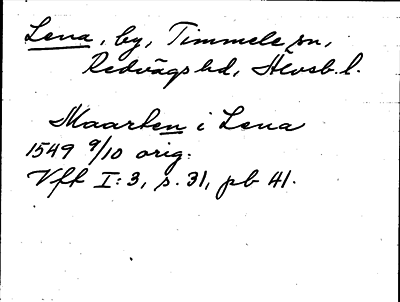 Lena, by, Timmele sn,
Redvägs hd, Älvsb. l.
Maarten i Lena
1549 9/10 orig.
Vft I:3, s. 31, pb 41.